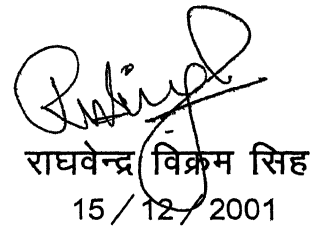 राघवेन्द्र विक्रम सिंह
15/12/2001